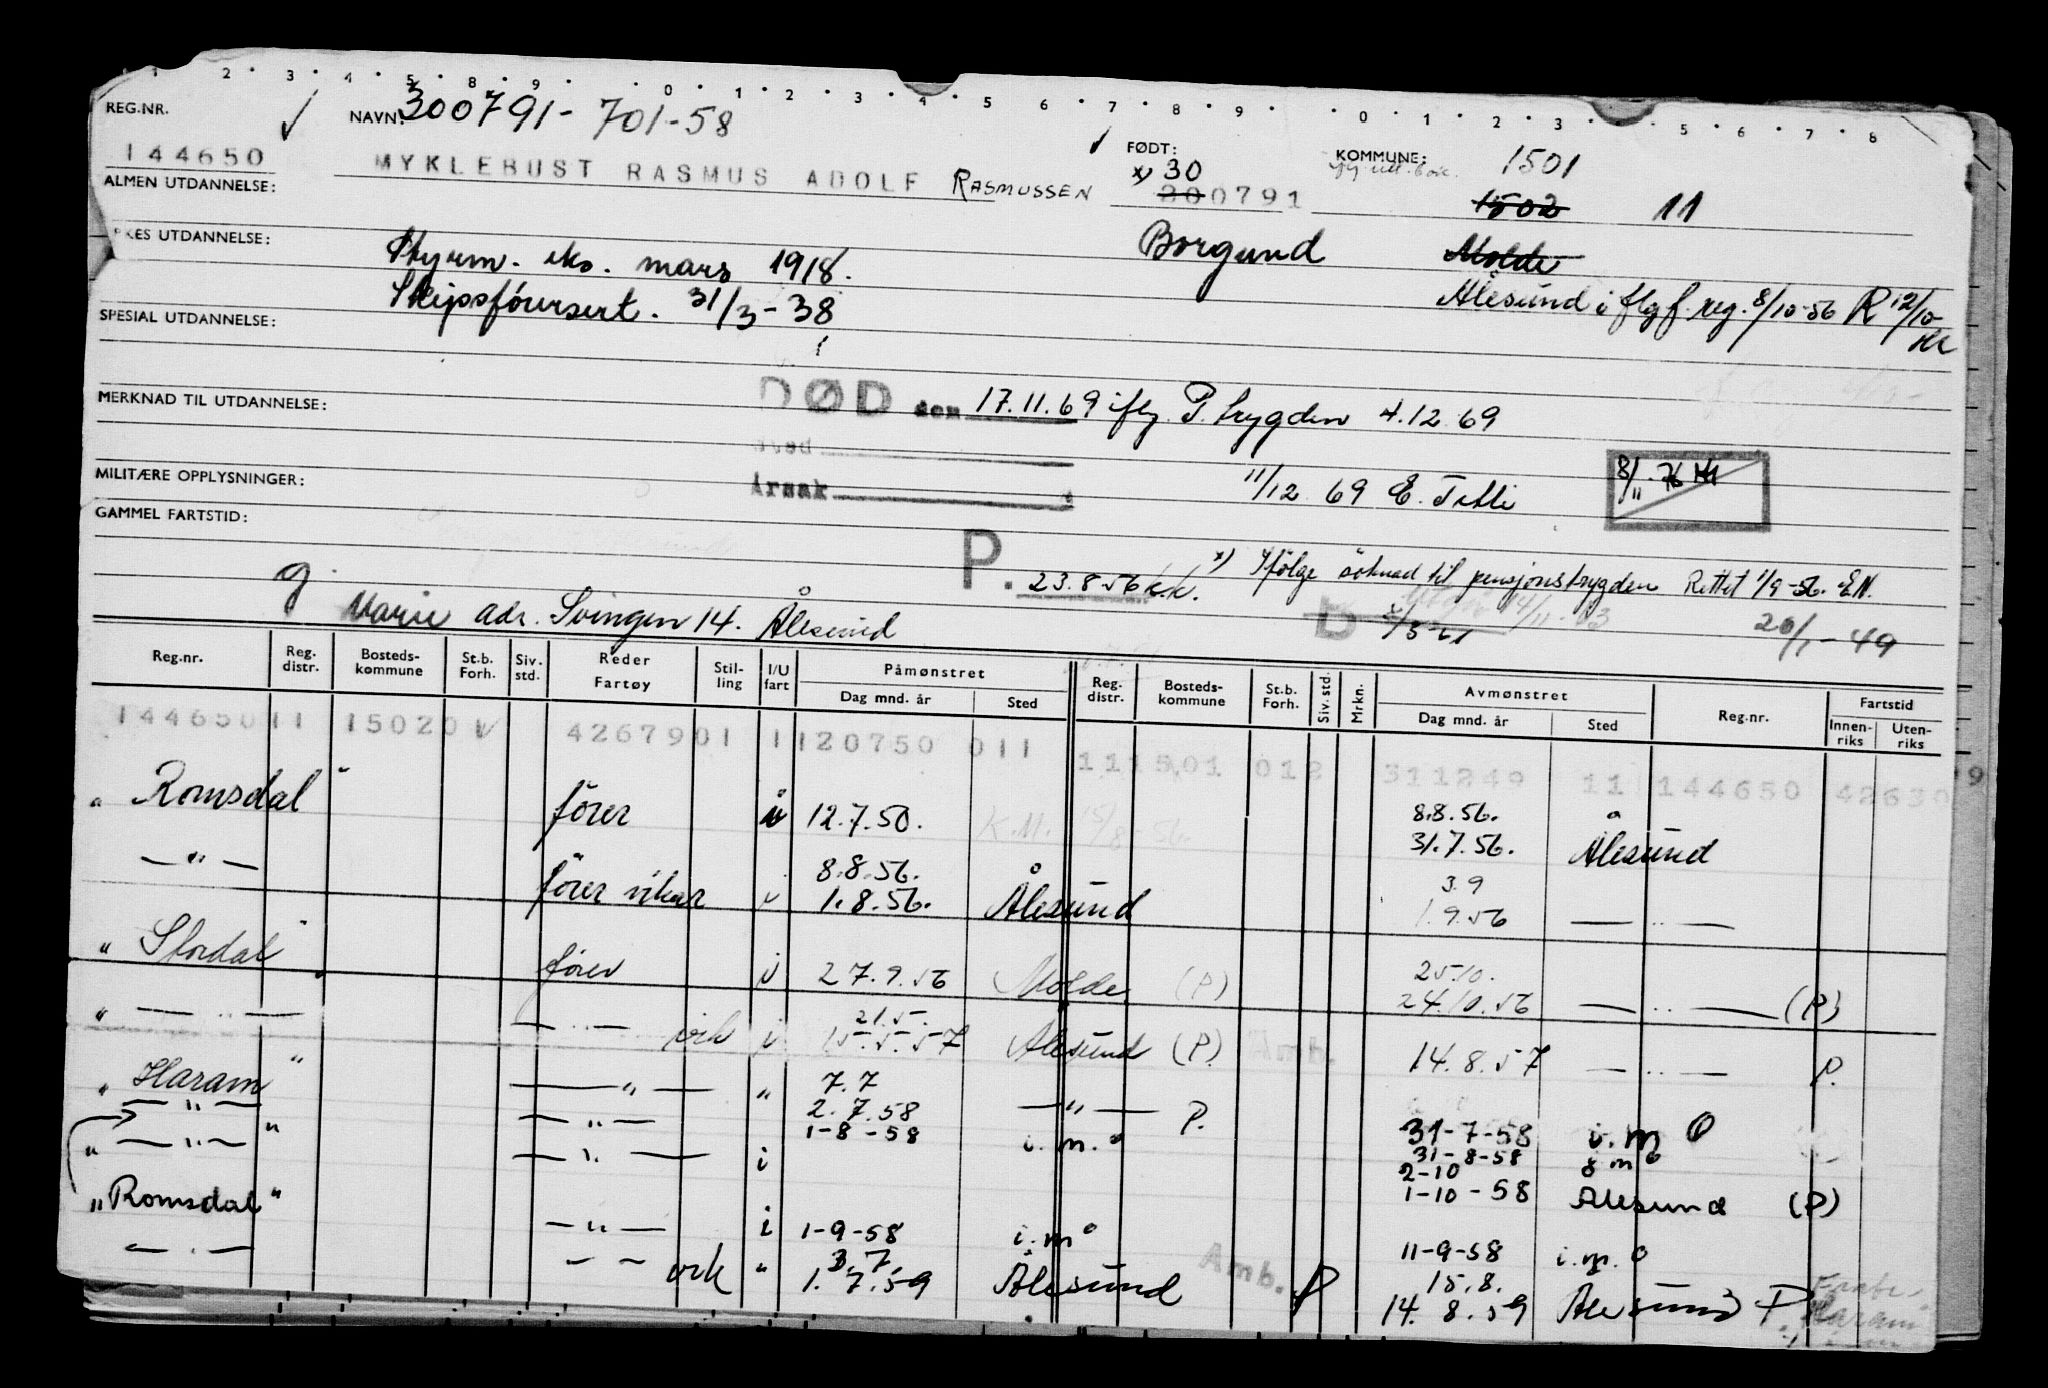 1 . 2 . 3 . 4 . 5 . 8 . 9 . . 0 . 1 . 2 . 3 . 4 . 5 6 . 7 . 8 . 9 . . 0 . 1 . 2 . 3 . . 5 . 6 . 7 . 8
REG.NR. NAVN: 300791- 701-58 FØDT: KOMMUNE: 1501
144650 MYKLEBUST RASMUS ADOLF RASMUSSEN x) 30
200791 1502 11
ALMEN UTDANNELSE:
RKES UTDANNELSE: Styrm. eks. mars 1918. Borgund Molde
Skipsförersert. 31/3-38 Ålesund i flg f. reg. 8/10-56 R 12/10
SPESIAL UTDANNELSE:
MERKNAD TIL UTDANNELSE: DØD den 17.11.69 ifly. P. trygden 4.12.69
Sted
MILITÆRE OPPLYSNINGER: Årsak 11/12 69 E. 8/11-76
GAMMEL FARTSTID:
P. 23.8.56 x) Ifölge söknad til pensjonstrygden Rettet 1/9-56. EN.
g. Marie adr. Svingen 14. Ålesund 20/1-49
Reg.nr. Reg. distr. Bosteds-kommune St.b. Forh. Siv. std. Reder Fartøy Stil-ling I/U fart Påmønstret Dag mnd. år Sted Reg. distr. Bosteds-kommune St.b. Forh. Siv. std. Mrkn. Avmønstret Dag mnd. år Sted Reg.nr. Fartstid Innen-riks Uten-riks
144650 11 15020 426790 1 1 120750 011 11 1501 012 311249 11 144650 42630
"Romsdal" förer i 12.7.50. 8.8.56.
31.7.56. Ålesund
— " — förer vikar i 8.8.56.
1.8.56. Ålesund 3.9
1.9.56 — " —
"Stordal" förer i 27.9.56 Molde (P) 25.10.
24.10.56 — " — (P)
" — " — — " — vik i 21.5.
15.5.57 Ålesund (P) Amb. 14.8.57 — " — P.
"Haram" — " — " 7.7
2.7.58 — " — P. 31-7-58 i.m O
— " — — " — 1-8-58 i.m.o 31-8-58
" — " — " — " — i 2-10
1-10-58 Ålesund (P)
"Romsdal" — " — i 1-9-58 i.m o 11-9-58 i.m. O
— " — — " — vik " 3.7.
1.7.59 Ålesund Amb. P 15.8.
14.8.59 Ålesund P. Haram